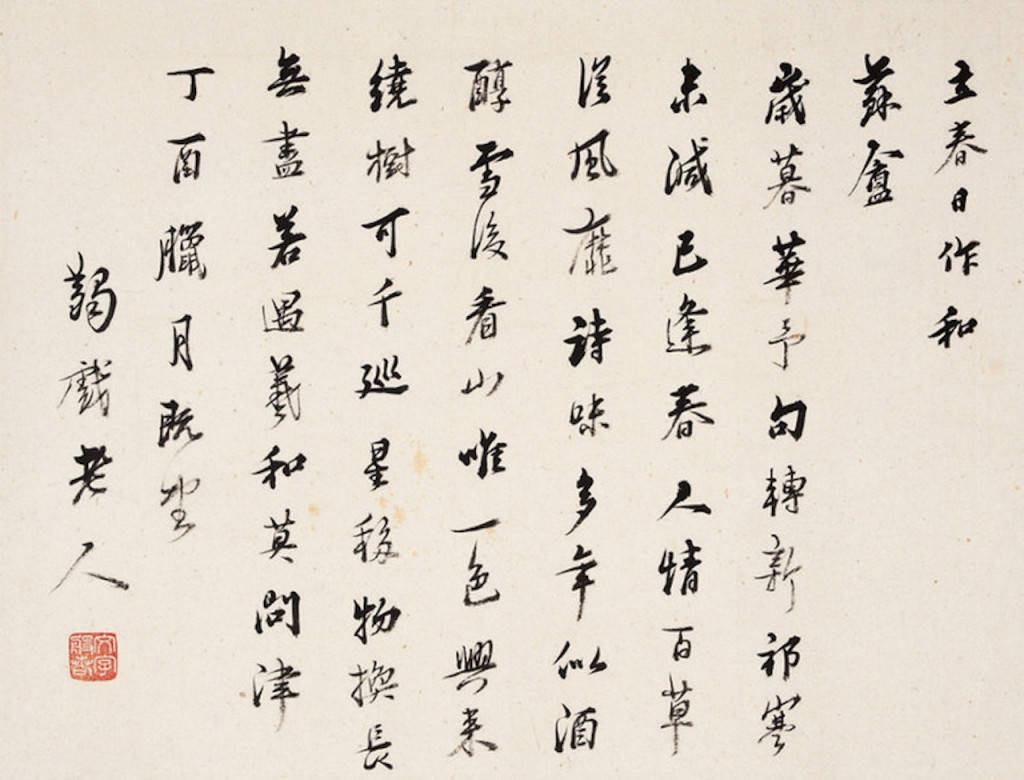 立春日作和
蘇盦
歲暮華予句轉新祁寒
未減已逢春人情百草
從風靡詩味多年似酒
醇雪後看山唯一色興来
繞樹可千巡星移物換長
無盡若遇羲和莫問津
丁酉臘月既望
蠲戲老人